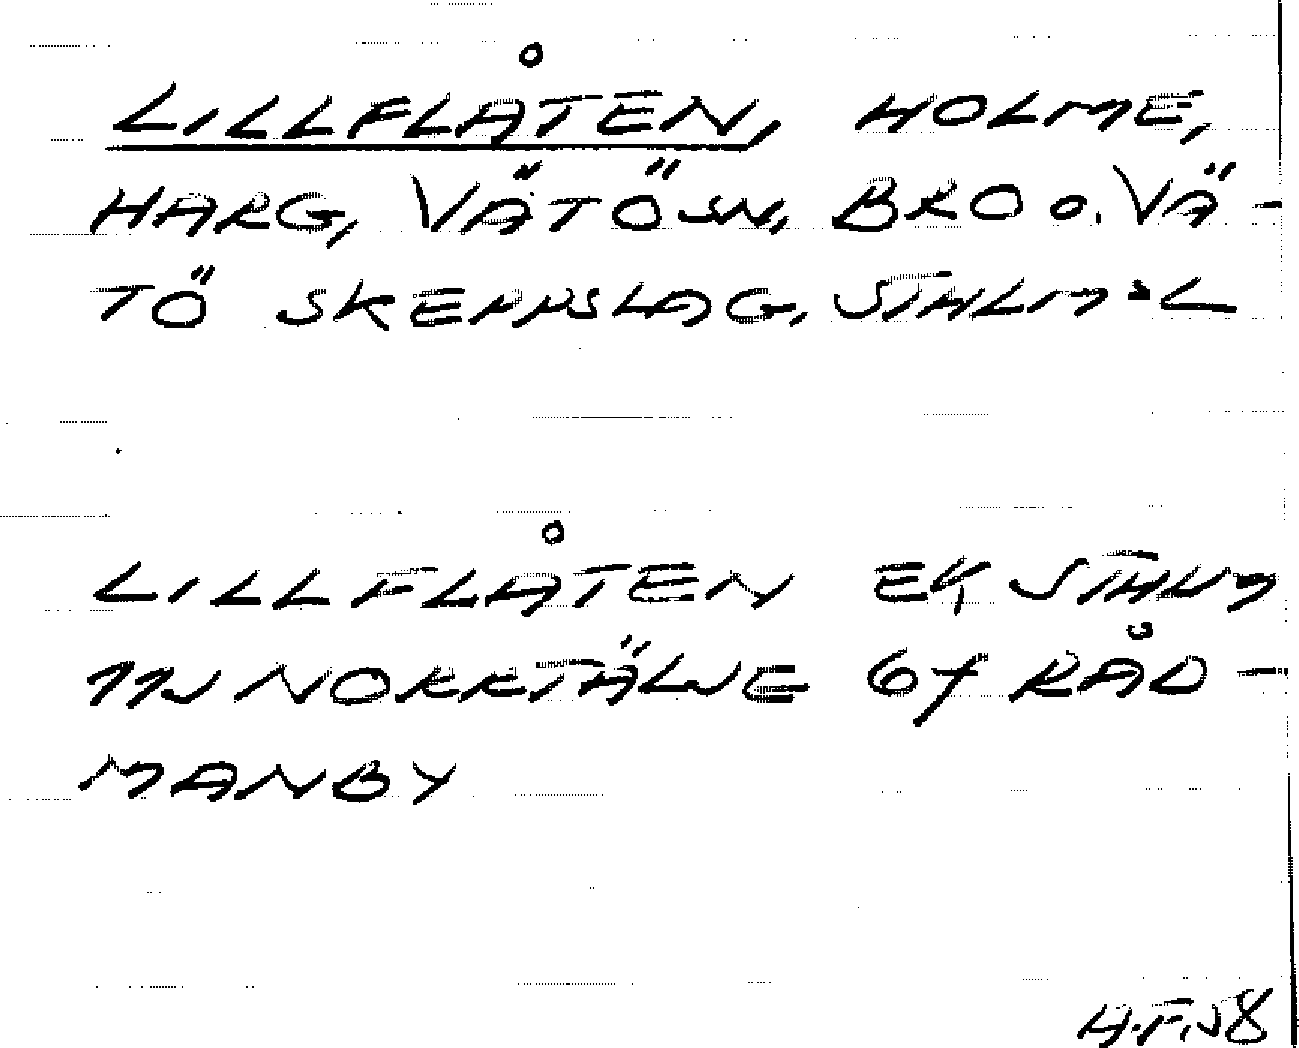 LILLFLÅTEN, HOLME,
HARG, VÄTÖSN, BRO O. VÄ-
TÖ SKEPPSLAG, STHLM:L
LILLFLÅTEN EK STHLM
NORRTÄLJE 6Y RÅD-
MANBY
H.F. 58